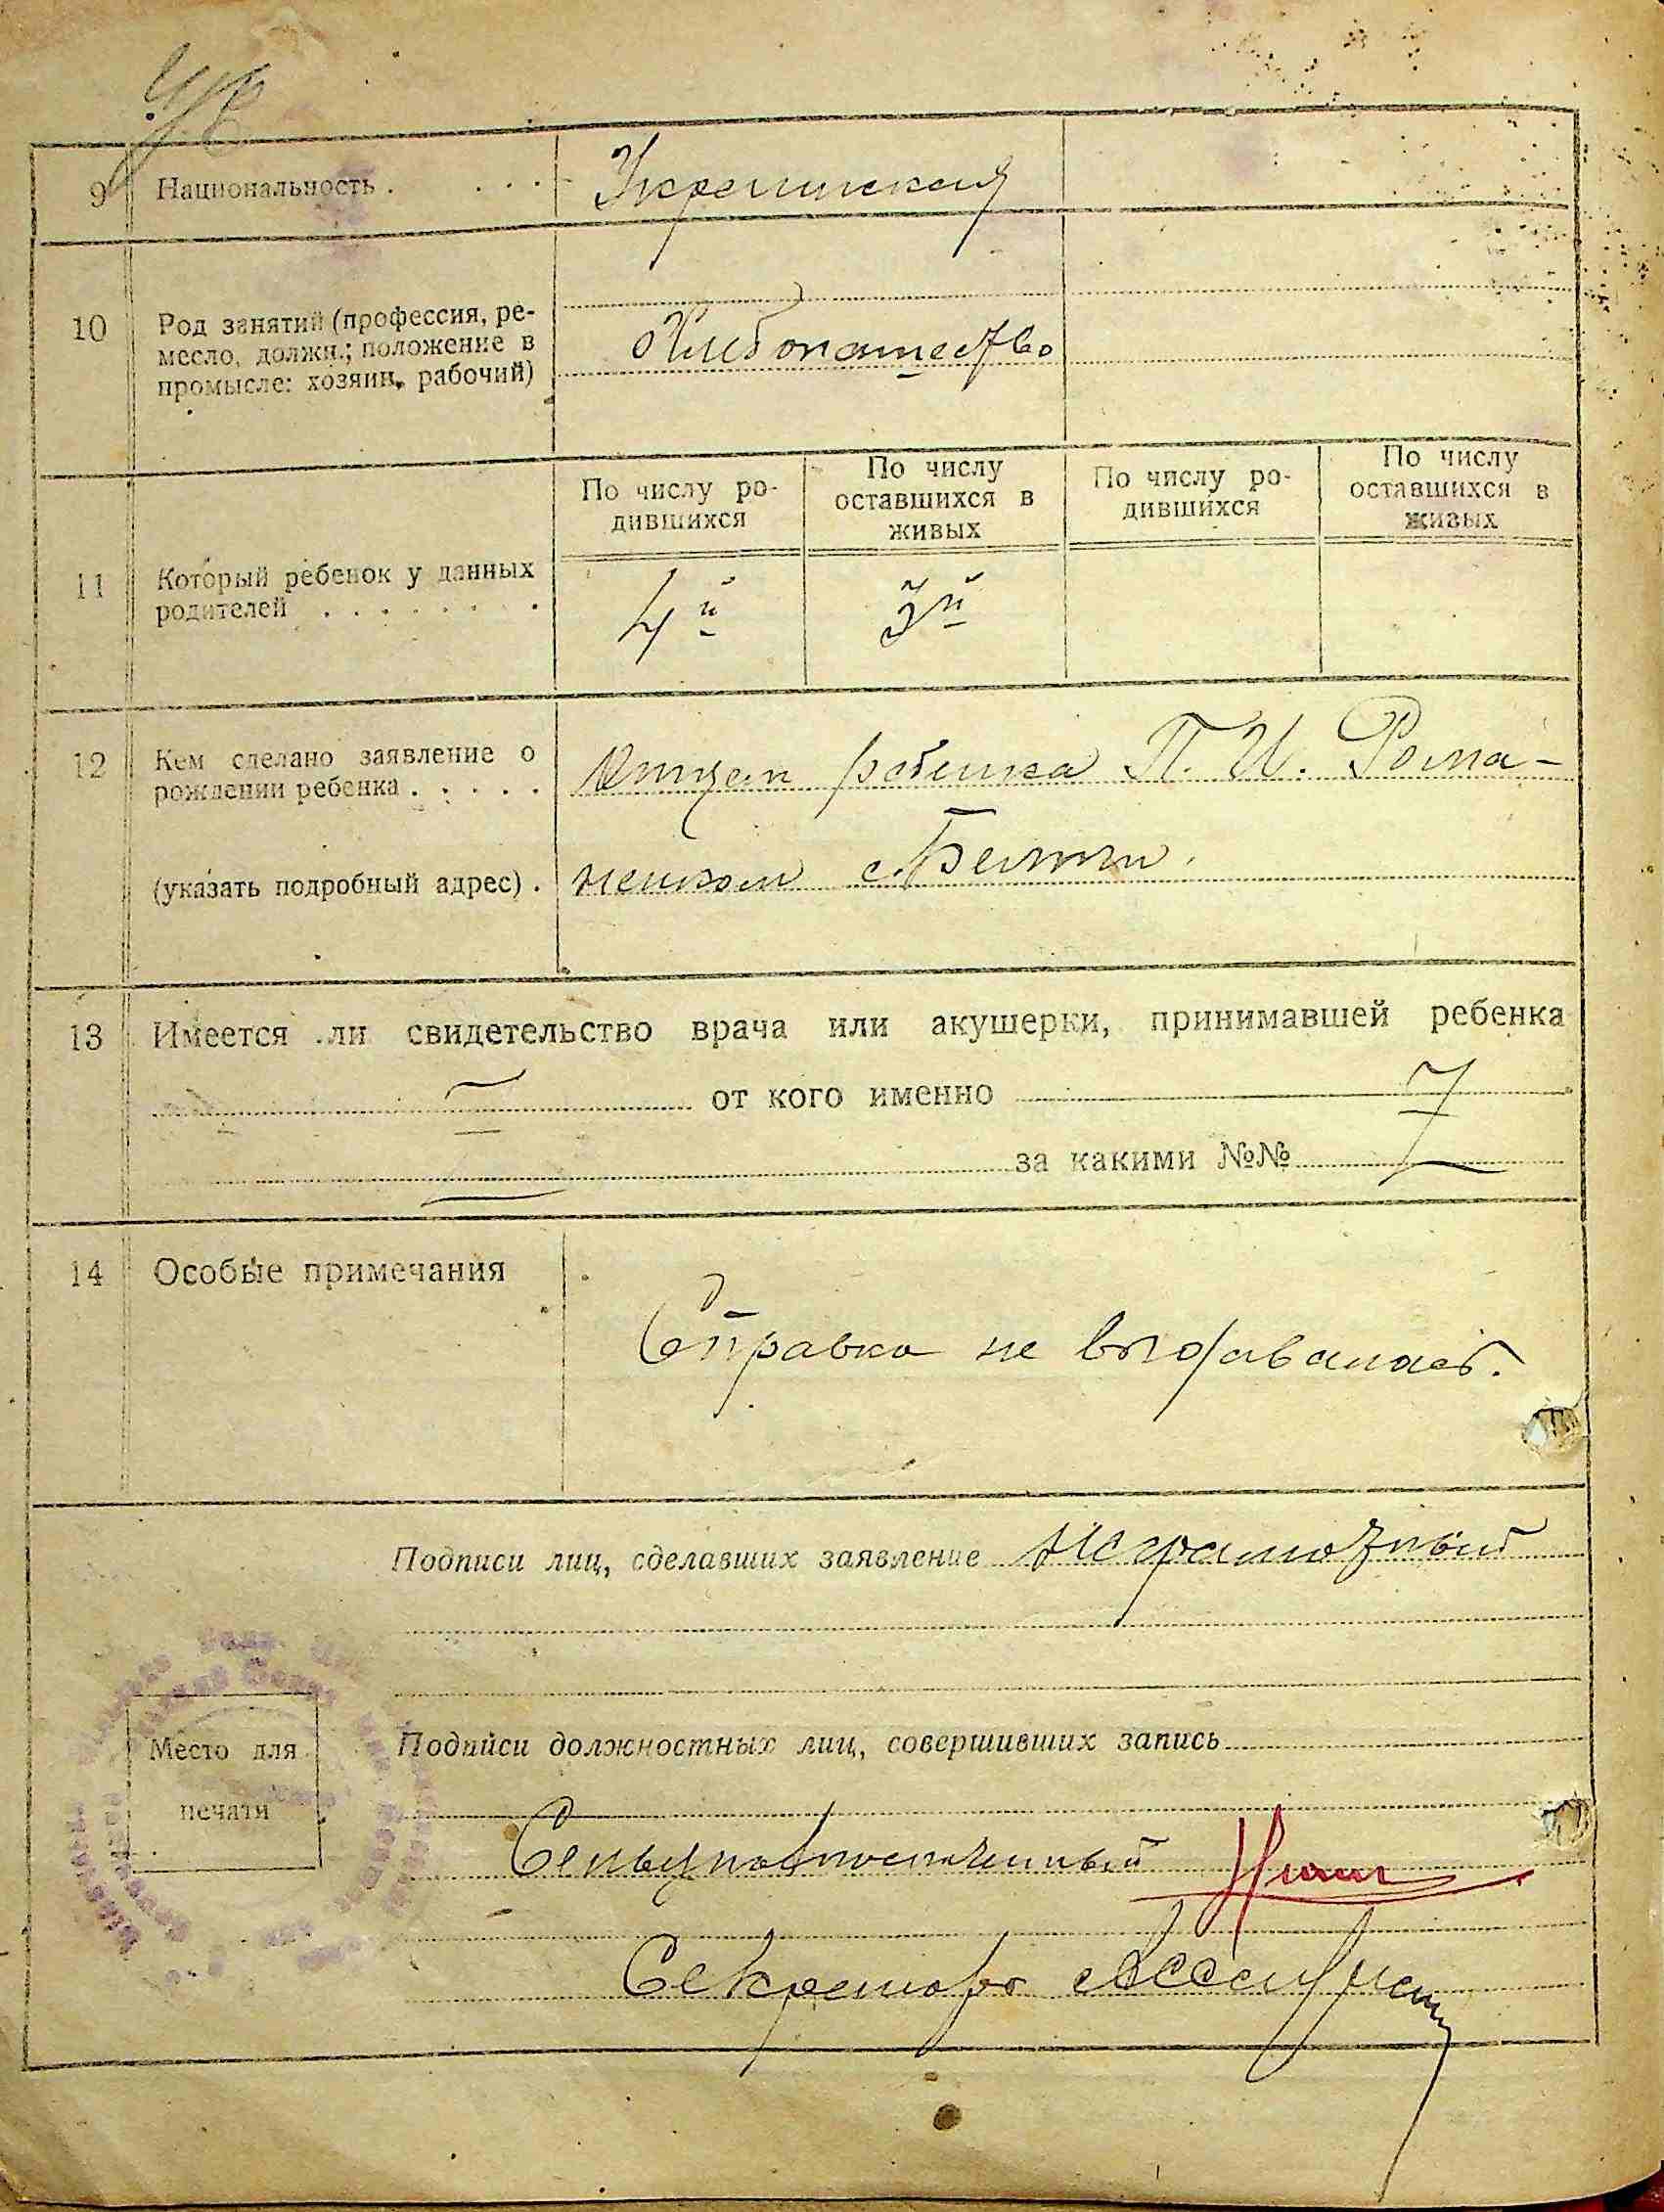 9 Национальность . . . . Украинская
10 Род занятий (профессия, ре-
месло, должн.; положение в
промысле: хозяин, рабочий) Хлебопашество
По числу ро-
дившихся
По числу
оставшихся в
живых
По числу ро-
дившихся
По числу
оставшихся в
живых
11 Который ребенок у данных
родителей . . . . . . . 4й 3й
12 Кем сделано заявление о
рождении ребенка . . . . . Отцем ребенка П. И. Рома-
(указать подробный адрес) . ненком с.
13 Имеется ли свидетельство врача или акушерки, принимавшей ребенка
от кого именно
за какими №№
14 Особые примечания
Справка не выдавалась.
Подписи лиц, сделавших заявление неграмотный
Подписи должностных лиц, совершивших запись
Место для
печати
Сельуполномоченный
Секретарь